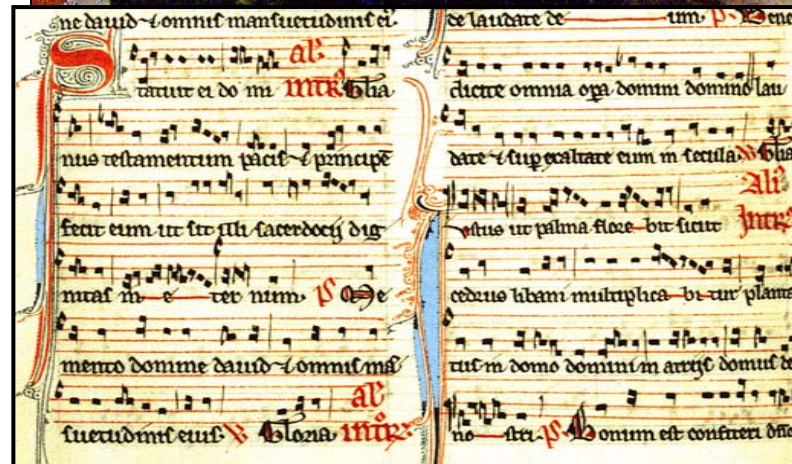 ne dauid ⁊ omnis mansuetudinis ei⁹.
Statuit ei do mi al'
intr̄. Gl̄ia
nus testamentum pacis ⁊ principē
fecit eum ut sit illi sacerdocij dig
nitas in e ter num. ps̄ Me
mento domine dauid ⁊ omnis mā
suetudinis eius. V̄ Gloria al'
intr̄.
de laudate de um. ps. Bene
dicite omnia opa domini domino lau
date ⁊ sup exaltate eum in secula. V̄ Gl̄ia
Iustus ut palma flore bit sicut Ali'
Intr̄.
cedrus libani multiplica bi tur planta
tus in domo domini in atrijs domus de
no stri. ps. Bonum est confiteri dn̄o